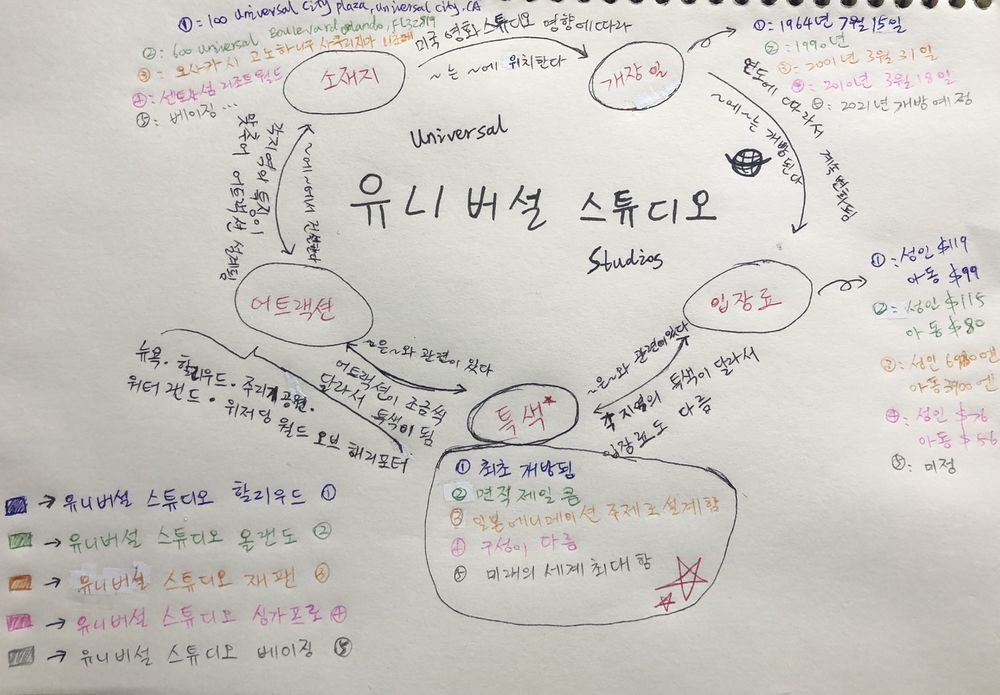 ①: 100 Universal City plaza, universal city. CA
②: 600 universal Boulevard orlando, FL32819
③: 오사카시 고노하나구 사쿠라지마
④: 센토사섬 리조트월드
⑤: 베이징 ...
소재지
미국 영화 스튜디오 영향에 따라
~는 ~에 위치한다
개장일
①: 1964년 7월 15일
②: 1990년
③: 2001년 3월 31일
④: 2010년 3월 18일
⑤: 2021년 개방 예정
연도에 따라서 계속 변화됨
~에 ~는 개방된다
Universal
유니버설 스튜디오
Studios
각지역의 특징이
맞추어 어트랙션 설계됨
~에 ~에서 건설한다
어트랙션
입장료
①: 성인 $119
아동 $99
②: 성인 $115
아동 $80
③: 성인 엔
아동 3900 엔
④: 성인 $76
아동 $56
⑤: 미정
~은 ~와 관련이 있다
어트랙션이 조금씩
달라서 특색이 됨
~은 ~와 관련이 있다
각 지역의 특색이 달라서
입장료도 다름
뉴욕 · 할리우드 · 주라기공원 ·
워터랜드 · 위저딩 월드 오브 해리포터
특색*
① 최초 개방됨
② 면적 제일 큼
③ 일본 에니메이션 주제로 설계함
④ 구성이 다름
⑤ 미래의 세계 최대 함
→ 유니버설 스튜디오 할리우드 ①
→ 유니버설 스튜디오 올랜도 ②
→ 유니버설 스튜디오 재팬 ③
→ 유니버설 스튜디오 싱가프로 ④
→ 유니버설 스튜디오 베이징 ⑤